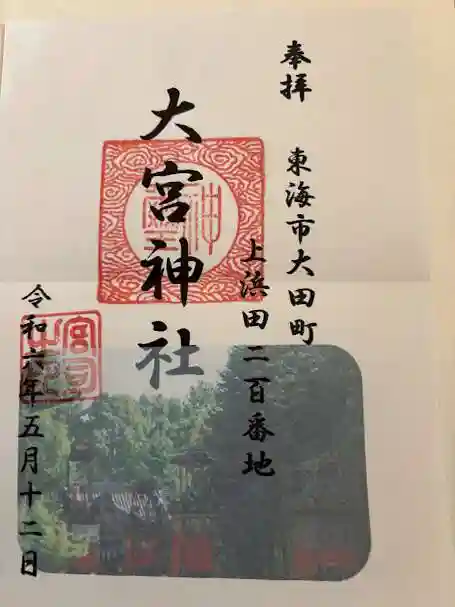 奉拝
東海市大田町
上浜田二百番地
大宮神社
令和六年五月十二日